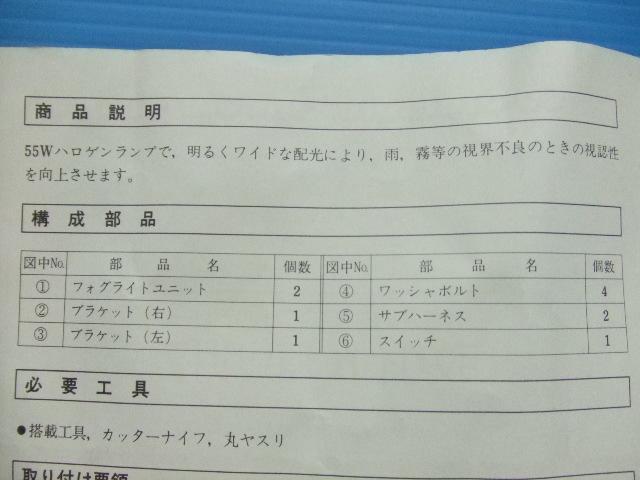 商品説明
55Wハロゲンランプで，明るくワイドな配光により，雨，霧等の視界不良のときの視認性
を向上させます。
構成部品
図中No. 部品名 個数 図中No. 部品名 個数
① フォグライトユニット 2 ④ ワッシャボルト 4
② ブラケット（右） 1 ⑤ サブハーネス 2
③ ブラケット（左） 1 ⑥ スイッチ 1
必要工具
●搭載工具，カッターナイフ，丸ヤスリ
取り付け要領